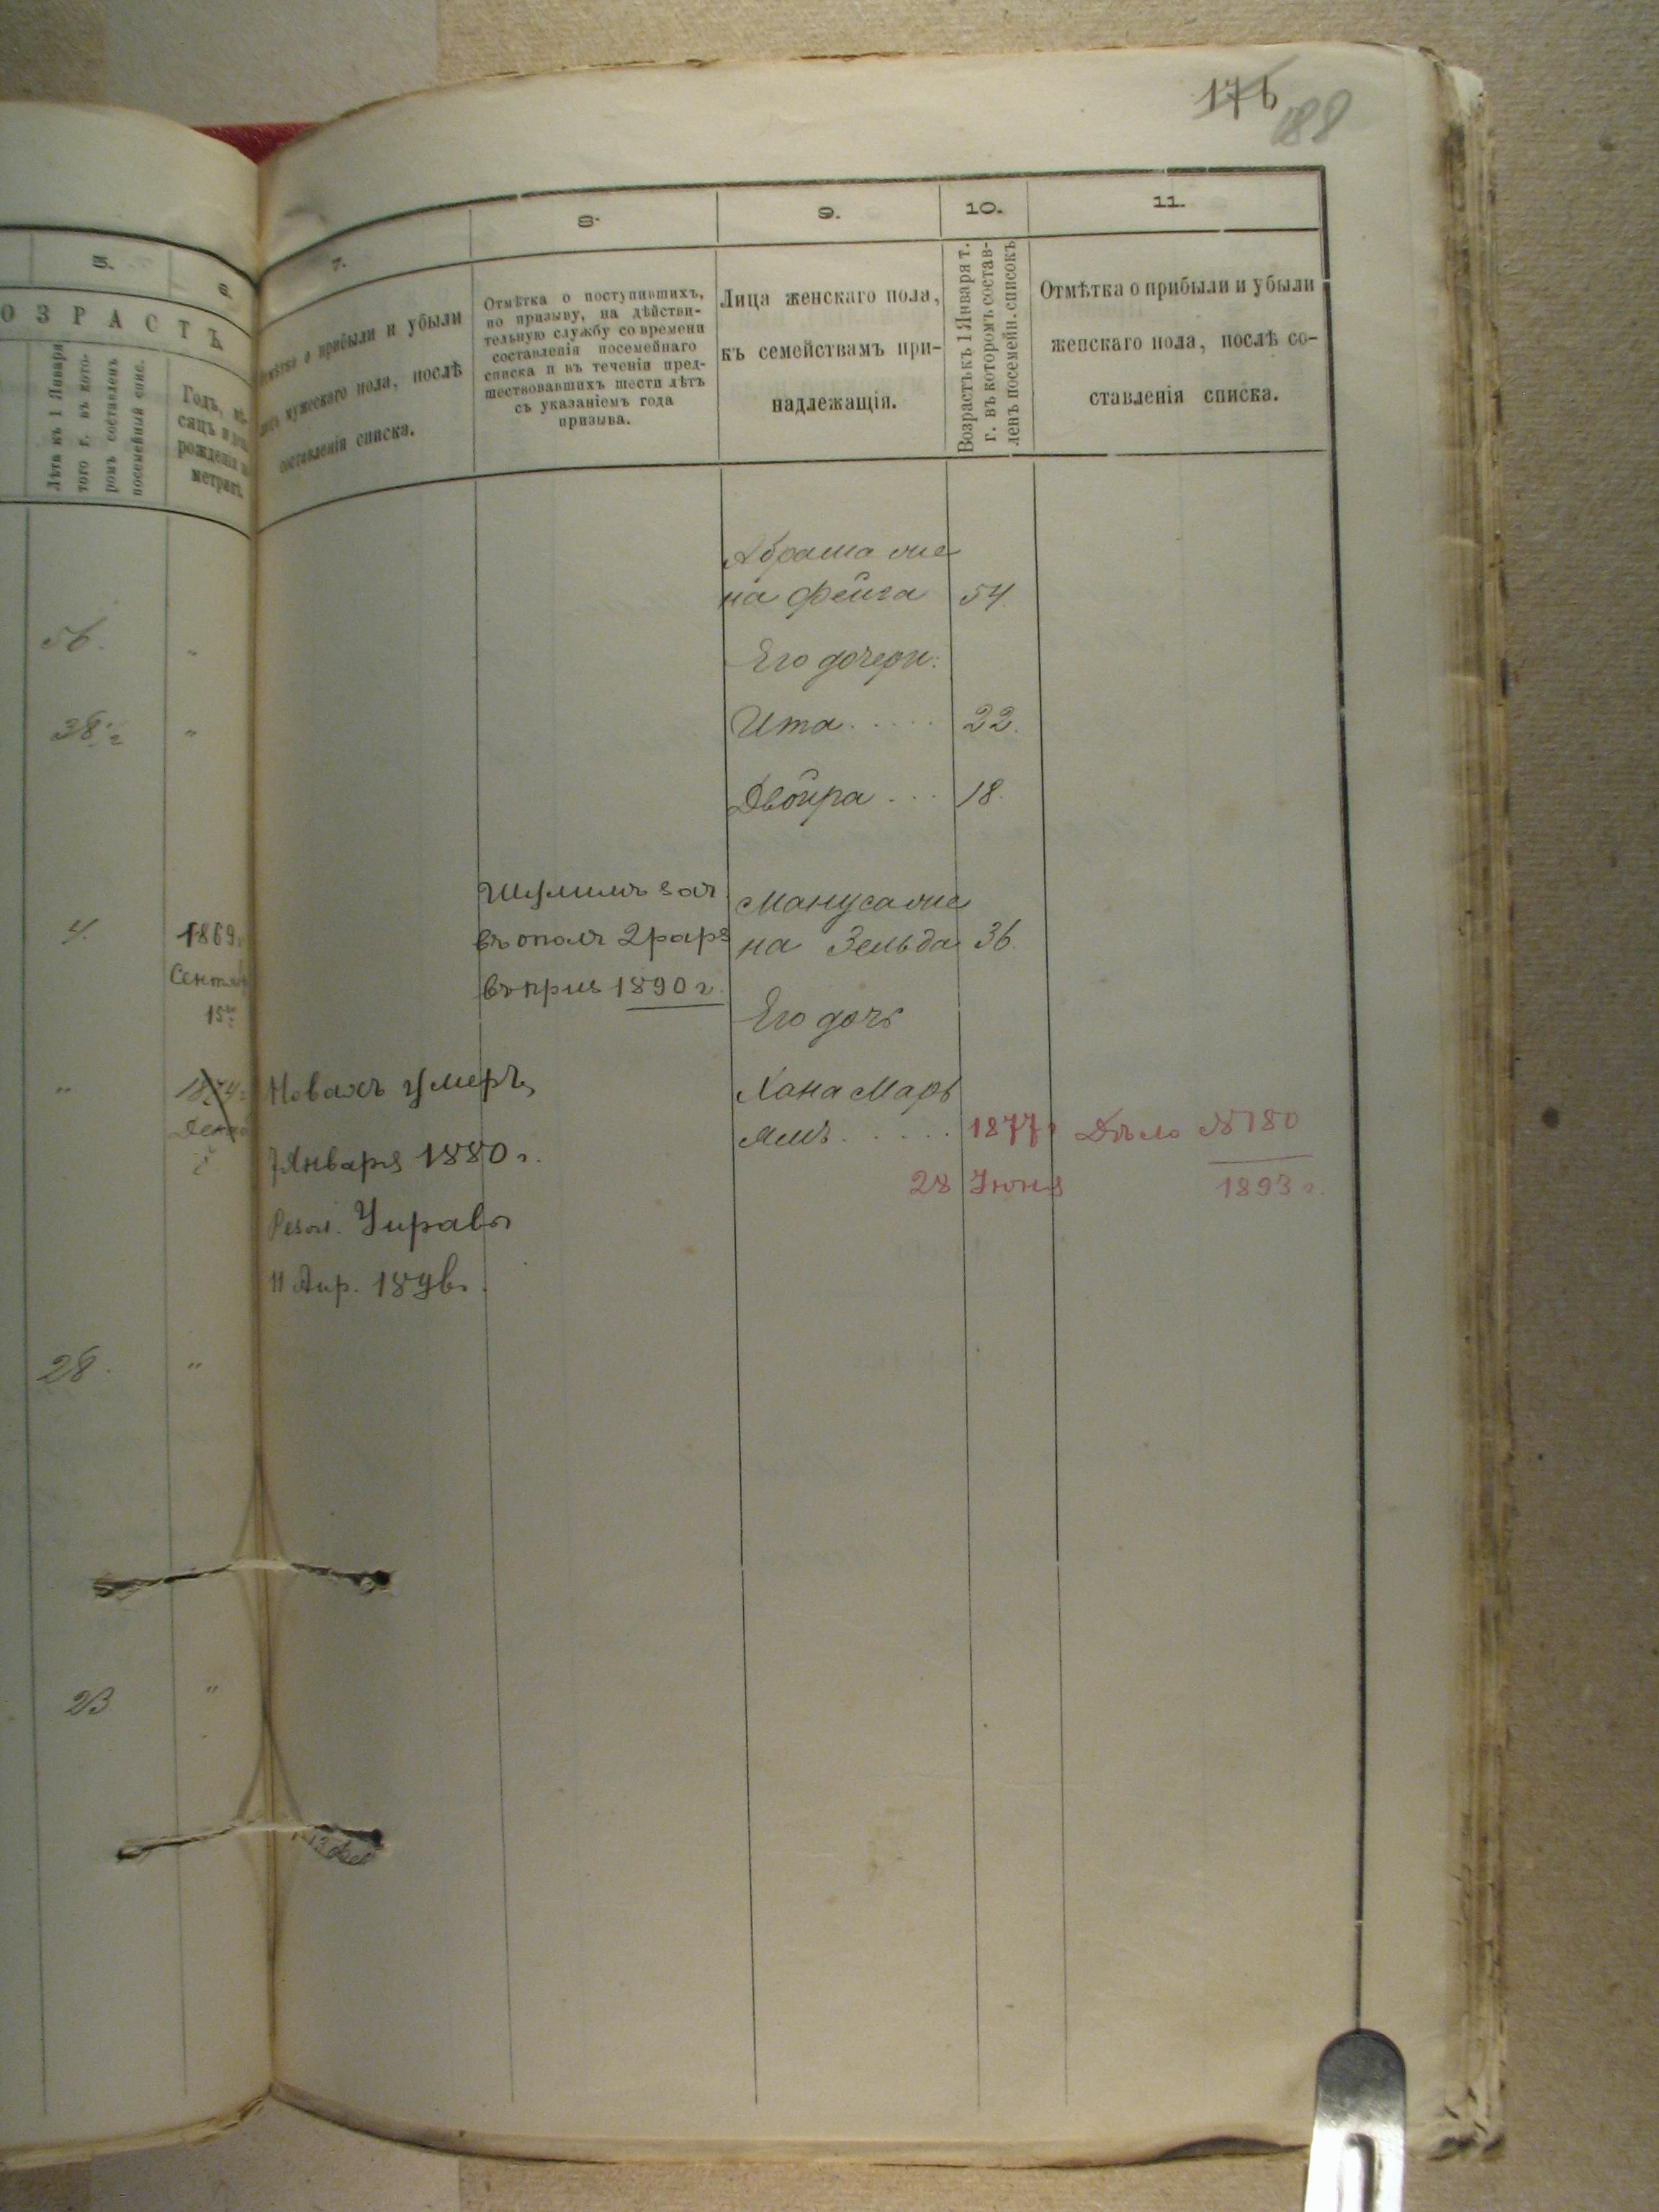 176
188
5.
6.
ОЗРАСТЪ
Лѣта къ 1 Января
того г. въ кото-
ромъ составленъ
посемейный спис.
Годъ, мѣ-
сяцъ и день
рожденія по
метрикѣ
56.
"
38 1/2
"
4.
1869.
Сентяб
15го
"
1874
28.
"
23
"
7.
о прибыли и убыли
мужескаго пола, послѣ
составленія списка.
8.
Отмѣтка о поступившихъ,
по призыву, на дѣйстви-
тельную службу со времени
составленія посемейнаго
списка и въ теченіи пред-
шествовавшихъ шести лѣтъ
съ указаніемъ года
призыва.
9.
Лица женскаго пола,
къ семействамъ при-
надлежащія.
10.
Возрастъ къ 1 Января т.
г. въ которомъ состав-
ленъ посемейн. списокъ
11.
Отмѣтка о прибыли и убыли
женскаго пола, послѣ со-
ставленія списка.
Абрама же
на Фейга 54.
Его дочери:
Ита..... 22.
Двойра... 18.
Шулимъ зач
въ опол 2 разр
въ приз 1890 г.
Мануса же
на Зельда 36.
Его дочь
Новахъ умеръ
7 Января 1880 г.
Резол. Управы
11 Апр. 1896 г.
Хана Марь
ямъ..... 1877 г Дѣло №180
28 Июня 1893 г.